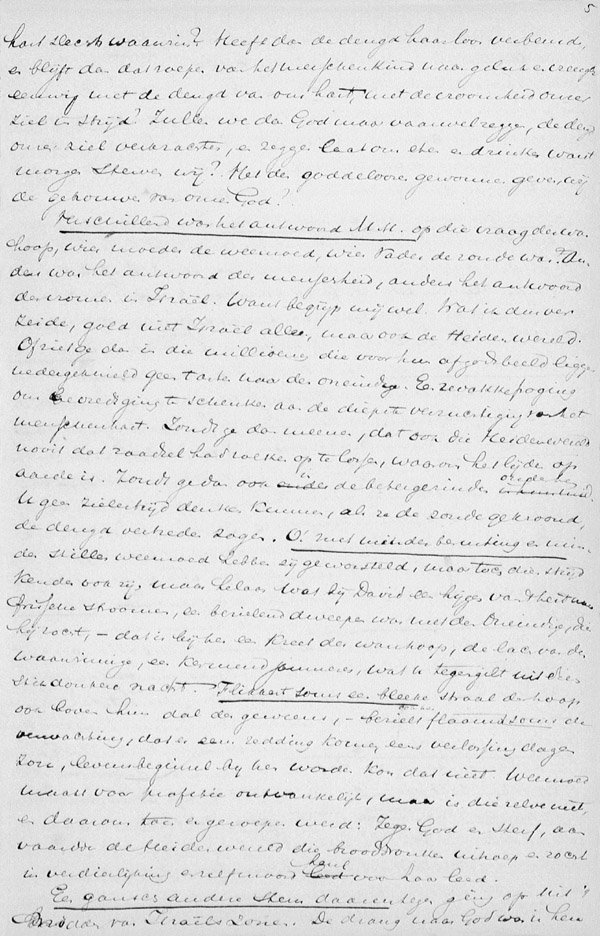 5
hart slechts waanzin? Heeft dan de deugd haar loon verbeurd,
en blijft dan dat roepen van het menschenkind naar geluk en vreugde
eeuwig met de deugd van ons hart, met de vroomheid onzer
ziel in strijd? Zullen we dan God maar vaarwel zeggen, de deugd
onzer ziel verkrachten, en zeggen laat ons eten en drinken want
morgen sterven wij? Het den goddeloozen gewonnen geven, wij
de getrouwen van onzen God?
Verschillend was het antwoord M. H. op die vraag der wan
hoop, wier moeder de weemoed, wier Vader de zonde was. An-
ders was het antwoord der menschheid, anders het antwoord
der vromen in Israël. Want begrijp mij wel. Wat ik dus ver
zeide, gold niet Israël alleen, maar ook de Heiden wereld.
Of ziet ge dan in die millioenen die voor hun afgodsbeeld liggen
nedergeknield geen tasten naar den oneindige. Een zwakke poging
om bevrediging te schenken aan de diepste verzuchting van het
menschenhart. Zoudt ge dan meenen, dat ook die Heidenwereld
nooit dat raadsel had zoeken op te lossen, waarom het lijden op
aarde is. Zoudt ge dan ook in de betere
U geen zielestrijd denken kunnen, als ze de zonde gekroond,
de deugd vertreden zagen. O! met minder bezieling en min-
der stillen weemoed hebben zij geworsteld, maar toch dien strijd
kenden ook zij, maar helaas wat bij David een hijgen was
frissche stroomen, een bezielend dweepen was met den Oneindige, dien
hij zocht, – dat is bij hen een kreet der wanhoop, de lach van den
waanzinnige, een kermend jammeren, wat u tegengilt uit dien
stikdonkeren nacht. Flikkert soms een bleeke straal der hoop
ook boven hun dal des geweens, – bezielt flaauw soms de
verwachting, dat er eens redding komen, eens verlossing dagen
zou, levensbeginsel bij hen worden kon dat niet. Weemoed
maakt voor profetie ontvankelijk, maar is die zelve niet,
en daarom toen er geroepen werd: Zegen God en sterf, aan
vaardde de Heidenwereld die broodronken uitroep en zocht
in verdierlijking en zelfmoord heul voor haar leed.
Een gansch andere stem daarentegen ging op uit 't
midden van Israëls zonen. De drang naar God was in hen